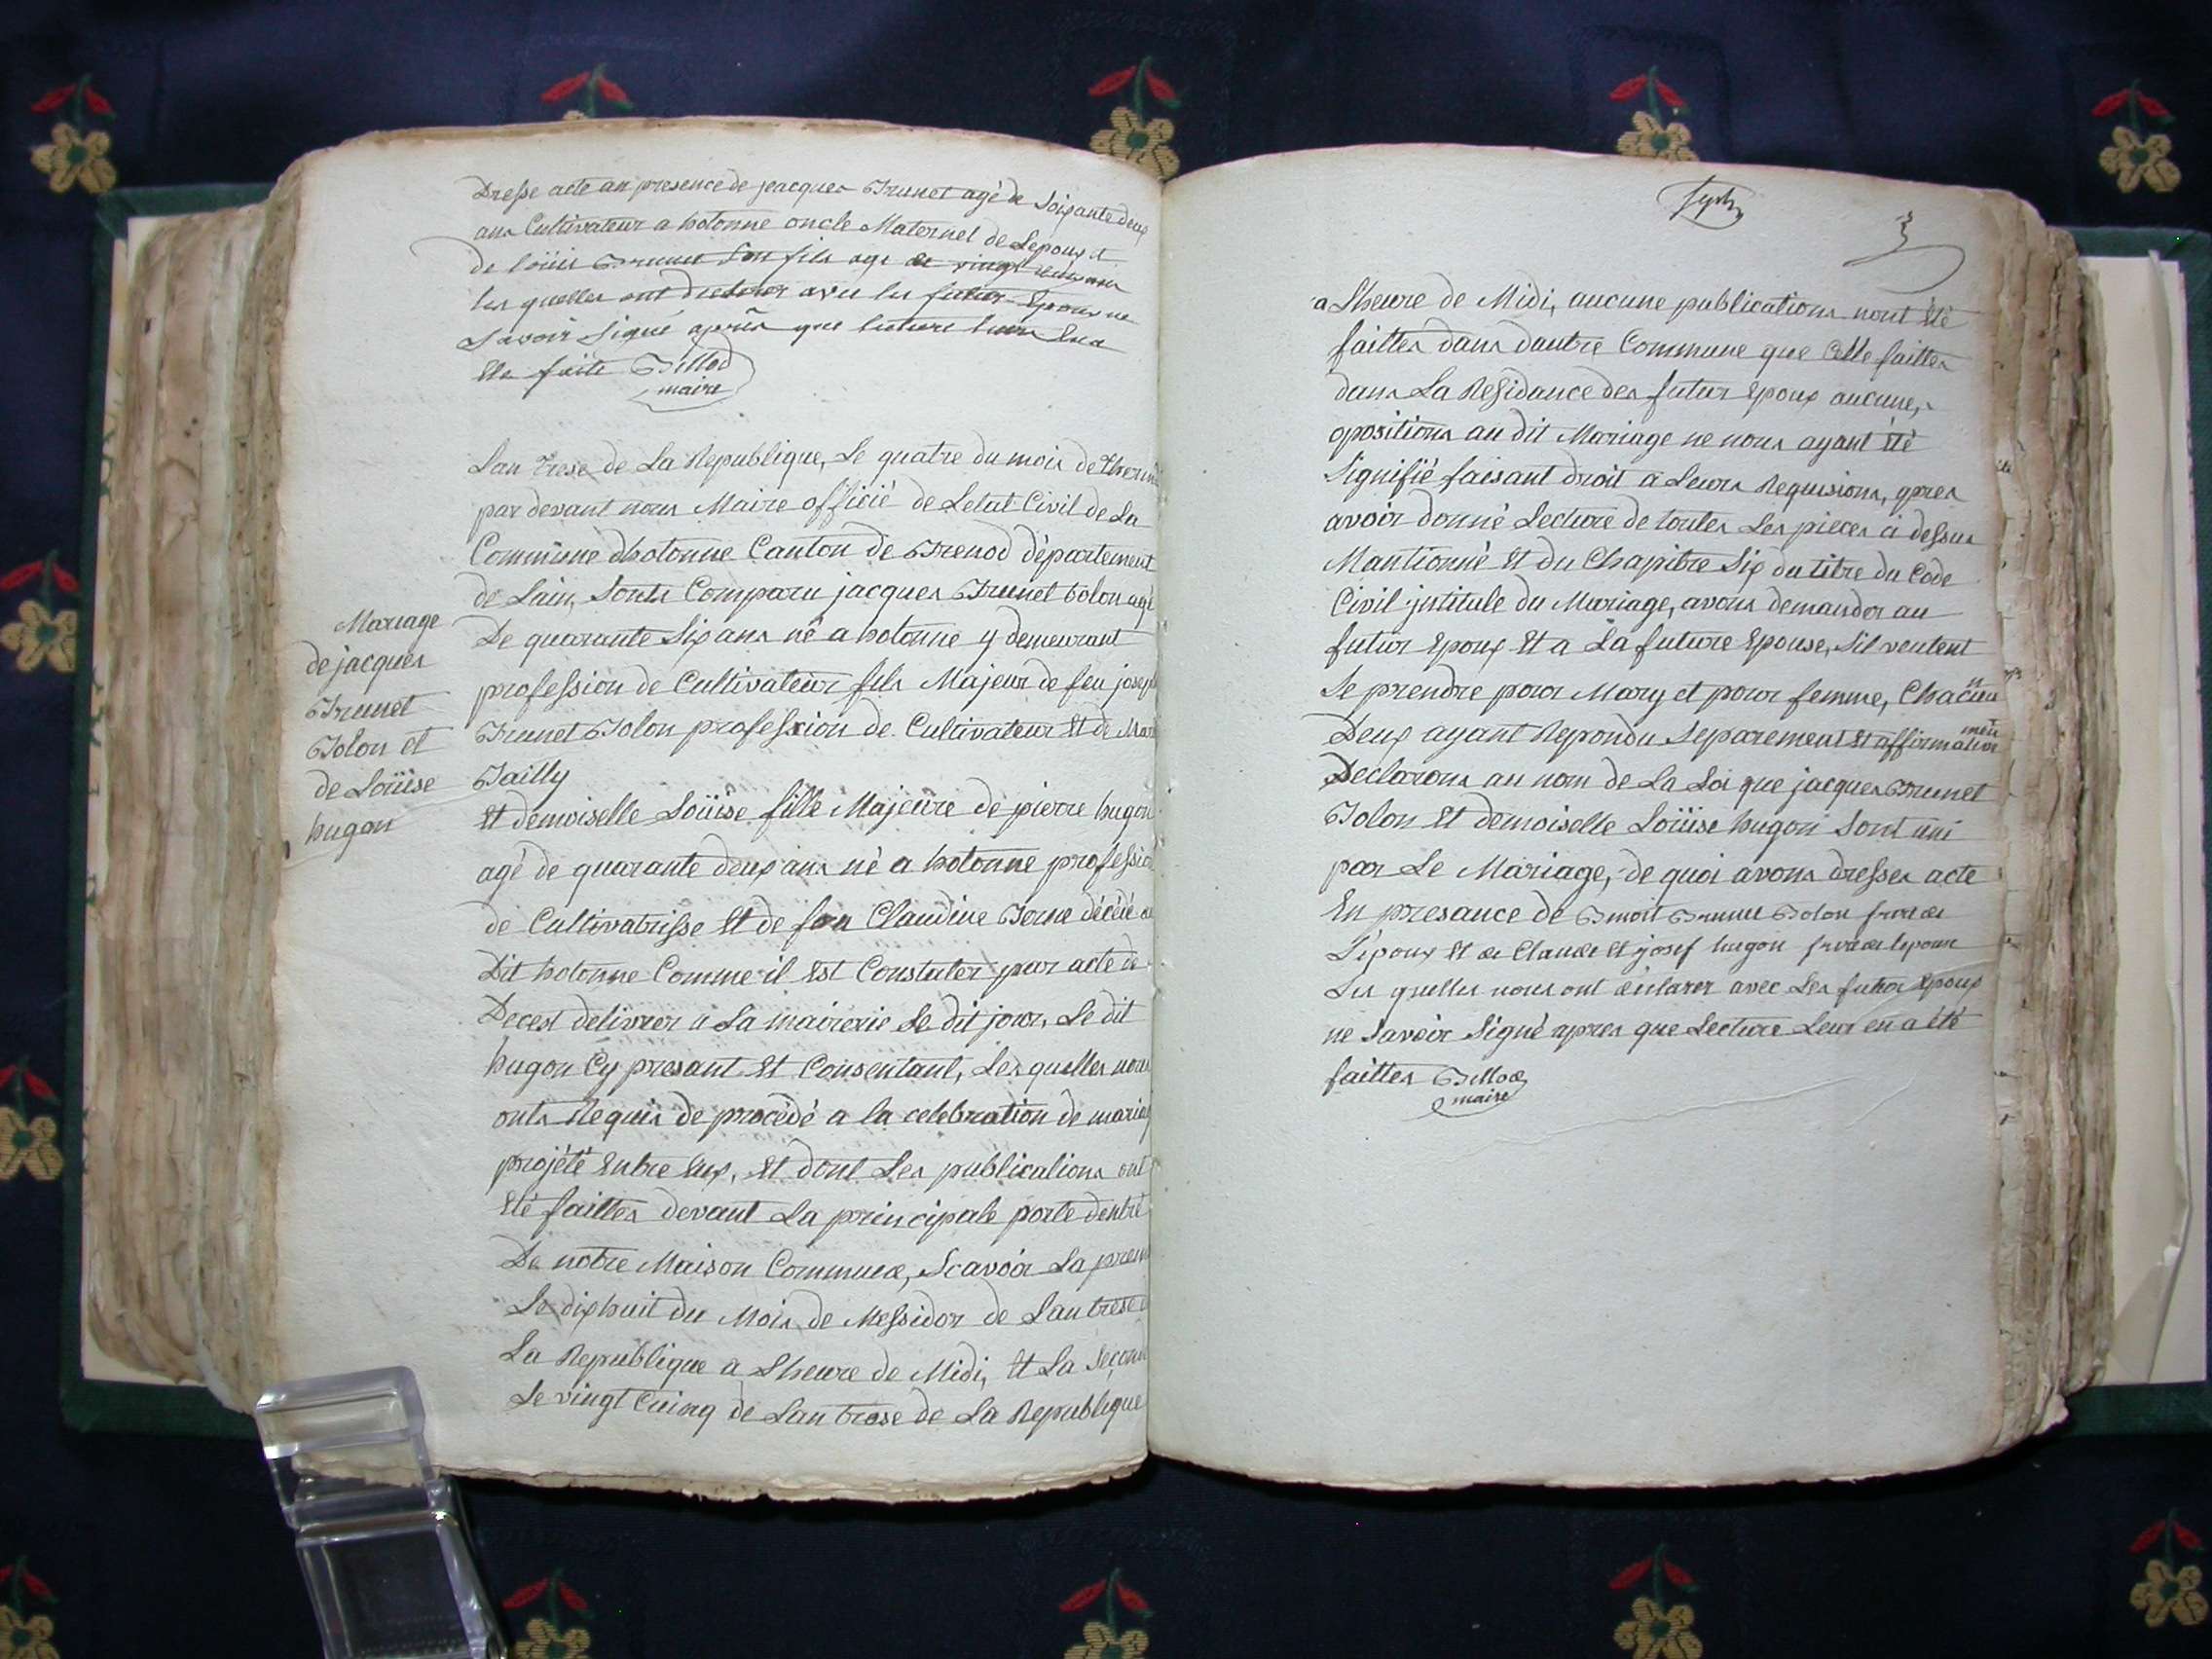 Dresse acte an presence de jeacques Brunet agé de Soixante deux
ans Cultivateur a hotonne oncle Maternel de Lepoux et
de loüis Brunet Son fils age de vingt
les quelles ont declarer avec les futur Epoux ne
Savoir Signé après que lecture leurs En a
Ete faite Billod
maire
Lan Trese de La Republique, Le quatre du mois de Therm
par devant nous Maire officié de Letat Civil de La
Commune dhotonne Canton de Brenod département
de Lain, Sonts Comparu jacques Brunet bolon agé
De quarante Six ans né a hotonne y demeurant
profession de Cultivateur fils Majeur de feu joseph
Brunet Bolon profession de Cultivateur Et de Mar
Bailly
Mariage
de jacques
Brunet
Bolon et
de Loüise
hugon
Et demoiselle Loüise fille Majeure de pierre hugon
agé de quarante deux ans né a hotonne profession
de Cultivatrisse Et de feu Claudine Borne décédé au
Dit hotonne Comme il Est Constater par acte de
Deces delivrer a La mairerie Le dit jour, Le dit
hugon Cy presant Et Consentant, Les quelles nous
onts Requis de procédé a la celebration de mariag
projété Entre Eux, Et dont Les publications ont
Eté faittes devant La principale porte dentré
De notre Maison Commune, Scavoir La prem
Le dix huit du Mois de Messidor de Lan trese d
La Republique a Lheure de Midi, Et La Second
Le vingt Cuinq de Lan trese de La Republique
a Lheure de Midi, aucune publications nont Eté
faittes dans dautre Commune que Celle faittes
dans La Residance des futur Epoux aucune,
opositions au dit Mariage ne nous ayant été
Signifié faisant droit a Leurs Requisions, apres
avoir donné Lecture de toutes Les pieces ci dessus
Mantionné Et du Chapitre Six du titre du Code
Civil jntitule du Mariage, avons demander au
futur Epoux Et a La future Epouse, Sil veutent
Se prendre pour Mary et pour femme, Chacun
Deux ayant Repondu Separement Et affirmativement
Declarons au nom de La Loi que jacques Brunet
Bolon Et demoiselle Loüise hugon Sont uni
par Le Mariage, de quoi avons dresser acte
En presance de Benoit Brunet Bolon frere de
L'époux Et de Claude Et josef hugon frere de lepouse
Les quelles nous ont déclarer avec Les futur Epoux
ne Savoir Signé apres que Lecture Leur en a été
faittes Billod
maire